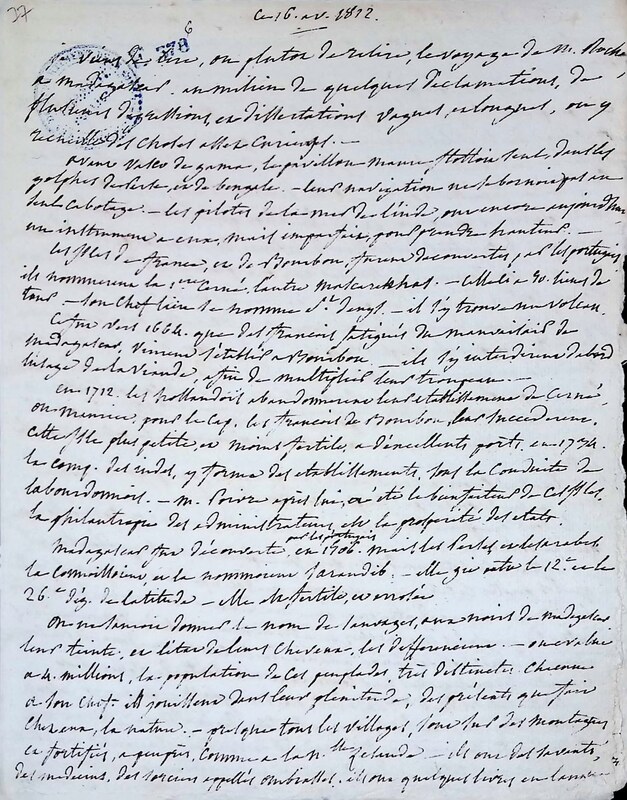 27
6
578
ce 16. av. 1812.
Viens de lire, ou plutot de relire, le voyage de m. Rochon
a madagascar. au milieu de quelques déclamations, de
plusieurs digressions, et dissertations vagues, et longues, on y
recueille des choses assez curieuses. —
avant Vasco de gama, le pavillon maure flottoit seul, dans les
golphes de Perse, et de bengale. — leur navigation ne se bornoit pas au
seul cabotage. — les pilotes de la mer de l'inde, ont encore aujourd'hui
un instrument a eux, mais imparfait, pour prendre hauteur. —
Les isles de france, et de Bourbon, furent decouvertes, par les portugais
ils nommerent la 1ere Cerné, l'autre mascarenhas. — elle a 40. lieues de
tour. — son chef lieu se nomme St. denys. — il s'y trouve un volcan.
Ce fut vers 1664. que des françois fatigués du mauvais air de
madagascar, vinrent s'établir a Bourbon — ils s'y interdirent d'abord
l'usage de la viande, afin de multiplier leurs troupeaux. —
en 1712. les hollandois abandonnerent leur etablissement de Cerné,
ou maurice, pour le Cap. les françois de Bourbon, leur succederent.
cette isle plus petite, et moins fertile, a d'excellents ports. en 1734.
la comp. des indes, y forma des etablissements, sous la conduite de
labourdonnais. — m. Poivre après lui, a été le bienfaiteur de ces isles.
la philantropie des administrateurs, est la prospérité des etats.
Madagascar fut découverte par les portugais en 1506. mais les Perses et les arabes
la connoissoient, et la nommoient Sarandib. — elle git entre le 12.e et le
26.e dég. de latitude — elle est fertile, et arrosée
On ne sauroit donner le nom de sauvages, aux noirs de madagascar
leur teinte, et l'état de leurs cheveux, les differencient. — on evalue
a 4. millions, la population de ces peuplades, très distinctes. chacune
a son chef. ils jouissent dans leur plénitude, des présents que fait
la nature. — presque tous les villages, sont sur des montagnes
et fortifiés, a peu près, comme a la nlle Zelande. — ils ont des savants,
des medecins, des sorciers appellés ombiasses. ils ont quelques livres en langue